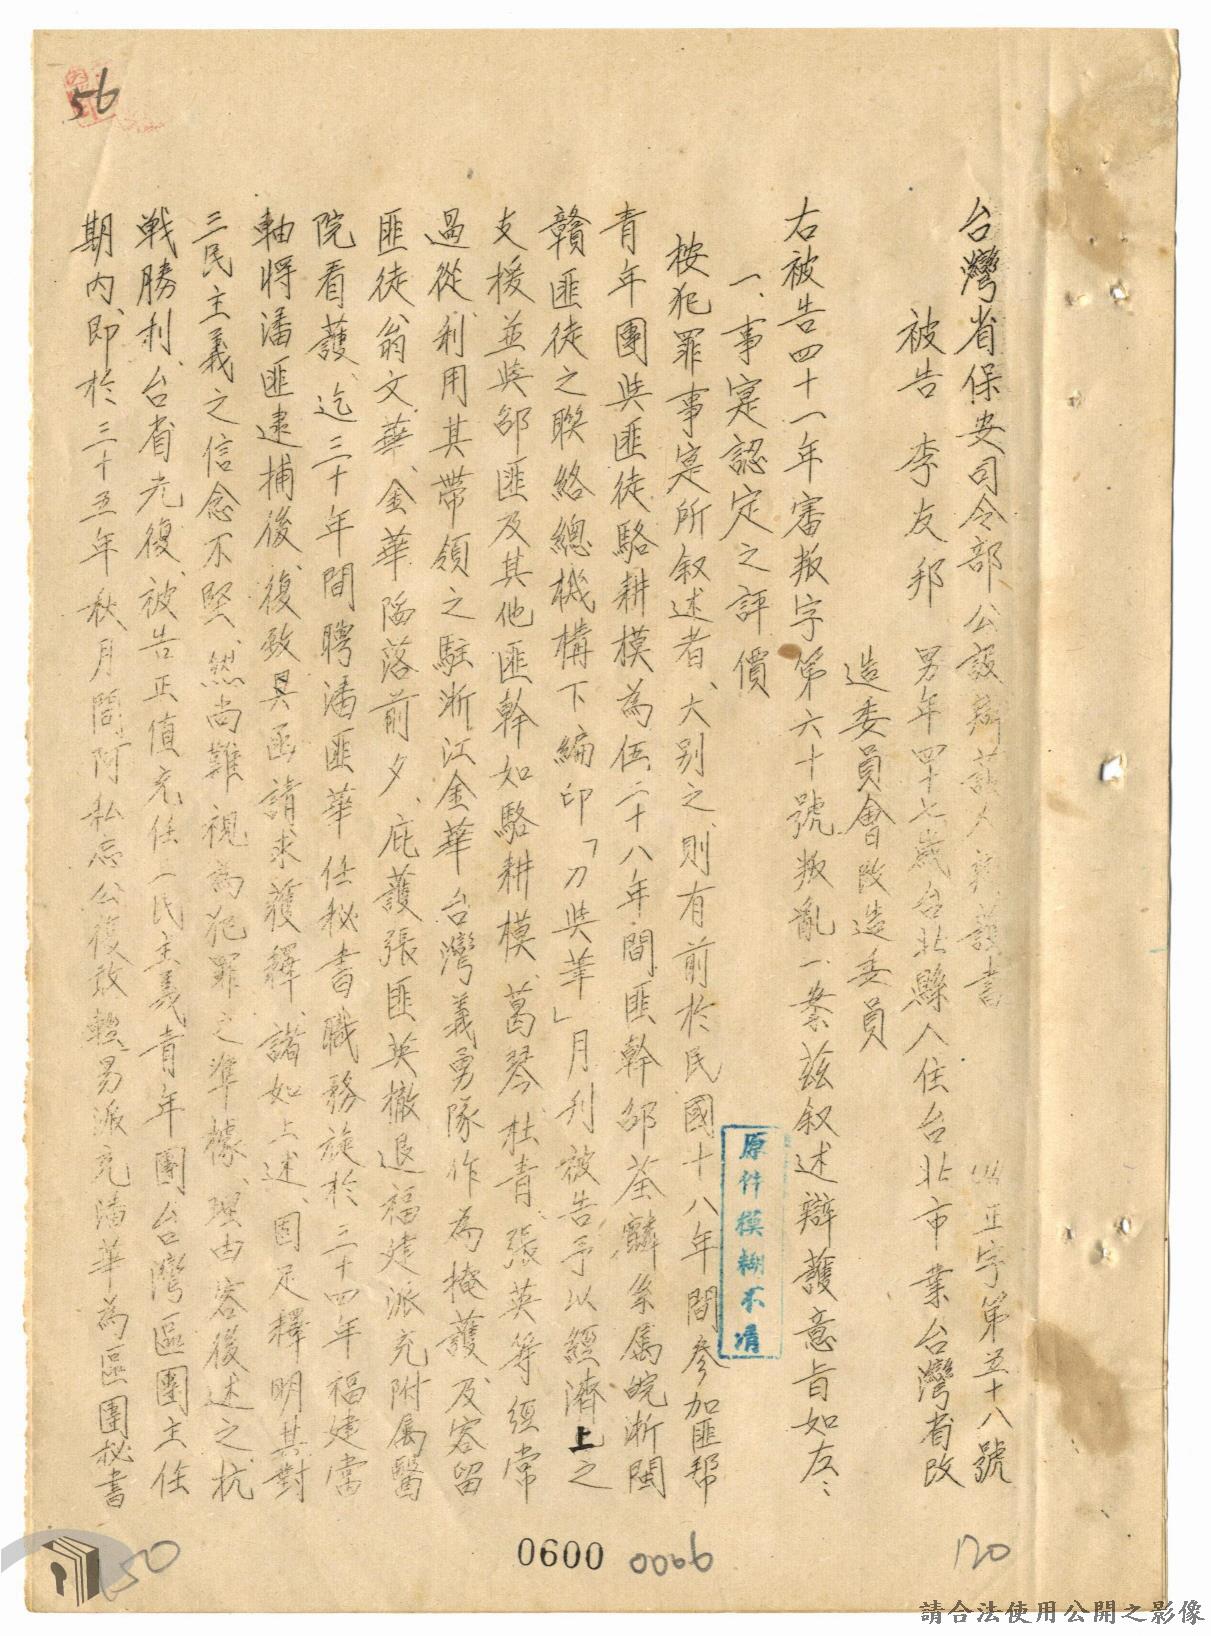 台灣省保安司令部公設辯護人辯護書
正字第五十八號
被告 李友邦 男年四十七歲台北縣人住台北市業台灣省改
造委員會改造委員
右被告四十一年審叛字第六十號叛亂一案茲叙述辯護意旨如左：
一、事寔認定之評價
按犯罪事寔所叙述者、大别之、則有前於民國十八年間參加匪幫
青年團與匪徒駱耕模為伍二十八年間匪幹邵荃麟系属皖浙閩
贛匪徒之聯絡總機構下編印「刀與筆」月刊被告予以經濟上之
支援並與邵匪及其他匪幹如駱耕模、葛琴杜青、張英等經常
過從、利用其帶領之駐浙江金華台灣義勇隊作為掩護、及容留
匪徒、翁文華、金華陥落前夕、庇護張匪英撤退福建派充附属醫
院看護、迄三十年間聘潘匪華任秘書職務旋於三十四年福建當
軸將潘匪逮捕後、復致具函請求獲釋、諸如上述、固足釋明其對
三民主義之信念不堅、然尚難視為犯罪之準據、理由容後述之、抗
戰勝利、台省光復、被告正值充任三民主義青年團台灣區團主任
期内、即於三十五年秋月間阿私忘公復敢輕易派充潘華為區團秘書
原件模糊不清
56
0600
0066
120
150
請合法使用公開之影像